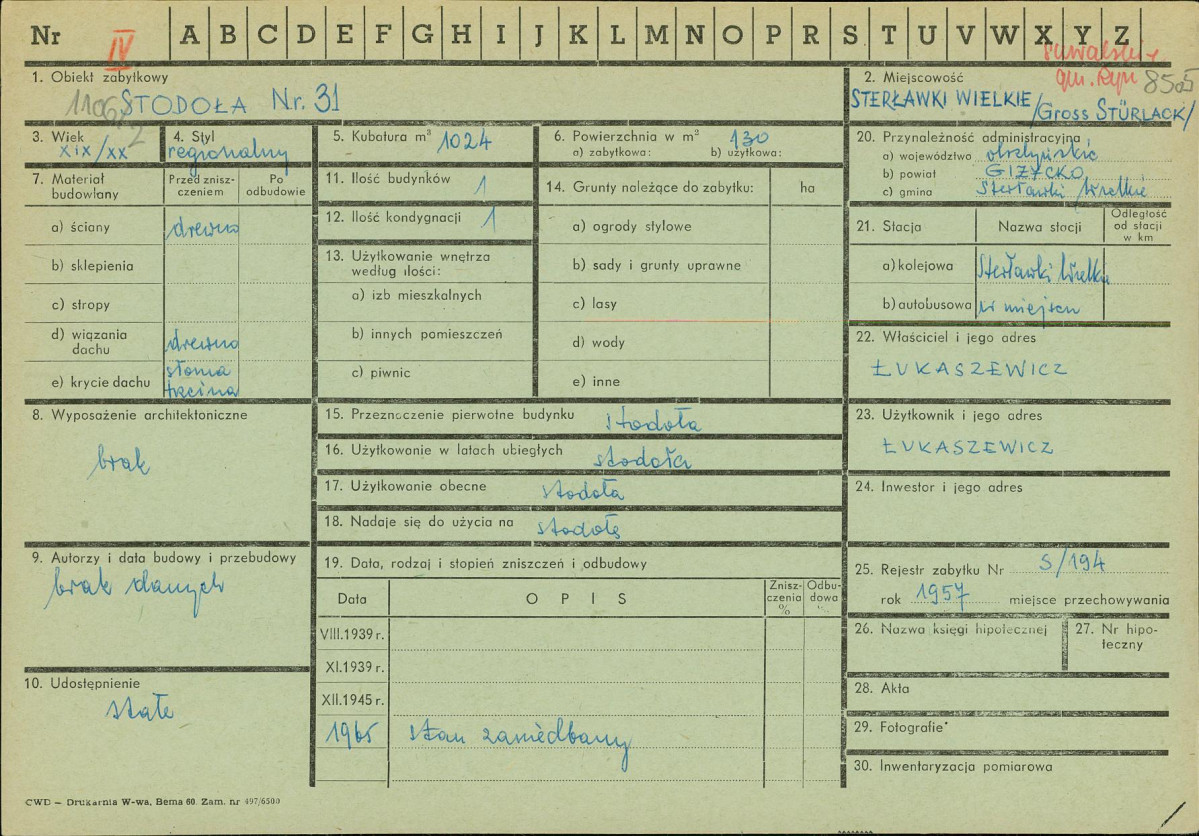 Nr IV A B C D E F G H I J K L M N O P R S T U V W X Y Z
gm. Ryn 8505
1. Obiekt zabytkowy
STODOŁA Nr. 31
2. Miejscowość
STERŁAWKI WIELKIE /GROSS STÜRLACK/
3. Wiek
XIX/XX
4. Styl
regionalny
5. Kubatura m³ 1024
6. Powierzchnia w m² 130
a) zabytkowa: b) użytkowa:
7. Materiał budowlany
Przed zniszczeniem
Po odbudowie
a) ściany drewno
b) sklepienia
c) stropy
d) wiązania dachu drewno
e) krycie dachu słoma trzcina
8. Wyposażenie architektoniczne
brak
9. Autorzy i data budowy i przebudowy
brak danych
10. Udostępnienie
stałe
11. Ilość budynków 1
12. Ilość kondygnacji 1
13. Użytkowanie wnętrza
według ilości:
a) izb mieszkalnych
b) innych pomieszczeń
c) piwnic
14. Grunty należące do zabytku: ha
a) ogrody stylowe
b) sady i grunty uprawne
c) lasy
d) wody
e) inne
15. Przeznaczenie pierwotne budynku stodoła
16. Użytkowanie w latach ubiegłych stodoła
17. Użytkowanie obecne stodoła
18. Nadaje się do użycia na stodołę
19. Data, rodzaj i stopień zniszczeń i odbudowy
Data OPIS Zniszczenia % Odbudowa %
VIII.1939 r.
XI.1939 r.
XII.1945 r.
1965 stan zaniedbany
20. Przynależność administracyjna
a) województwo olsztyńskie
b) powiat GIŻYCKO
c) gmina Sterławki Wielkie
21. Stacja Nazwa stacji Odległość od stacji w km
a) kolejowa Sterławki Wielkie
b) autobusowa w miejscu
22. Właściciel i jego adres
ŁUKASZEWICZ
23. Użytkownik i jego adres
ŁUKASZEWICZ
24. Inwestor i jego adres
25. Rejestr zabytku Nr S/194
rok 1957 miejsce przechowywania
26. Nazwa księgi hipotecznej
27. Nr hipoteczny
28. Akta
29. Fotografie
30. Inwentaryzacja pomiarowa
CWD — Drukarnia W-wa, Bema 60. Zam. nr 497/6500